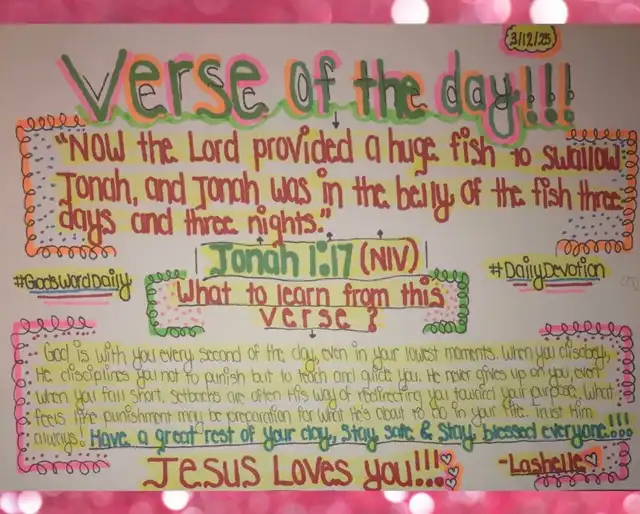 3/12/25
Verse of the day!!!
"Now the Lord provided a huge fish to swallow
Jonah, and Jonah was in the belly of the fish three
days and three nights."
Jonah 1:17 (NIV)
#GodsWordDaily
#DailyDevotion
What to learn from this
verse?
God is with you every second of the day, even in your lowest moments. When you disobey,
He disciplines you not to punish but to teach and guide you. He never gives up on you even
when you fall short. Setbacks are often His way of redirecting you toward your purpose. What
feels like punishment may be preparation for what He's about to do in your life. Trust Him
always. Have a great rest of your day, stay safe & stay blessed everyone!!!
Jesus Loves you!!!
-Lashelle